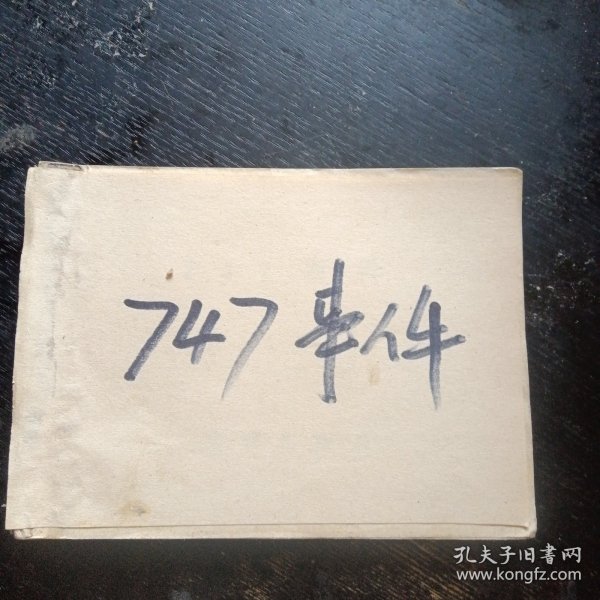 747事件
孔夫子旧書网
www.kongfz.com